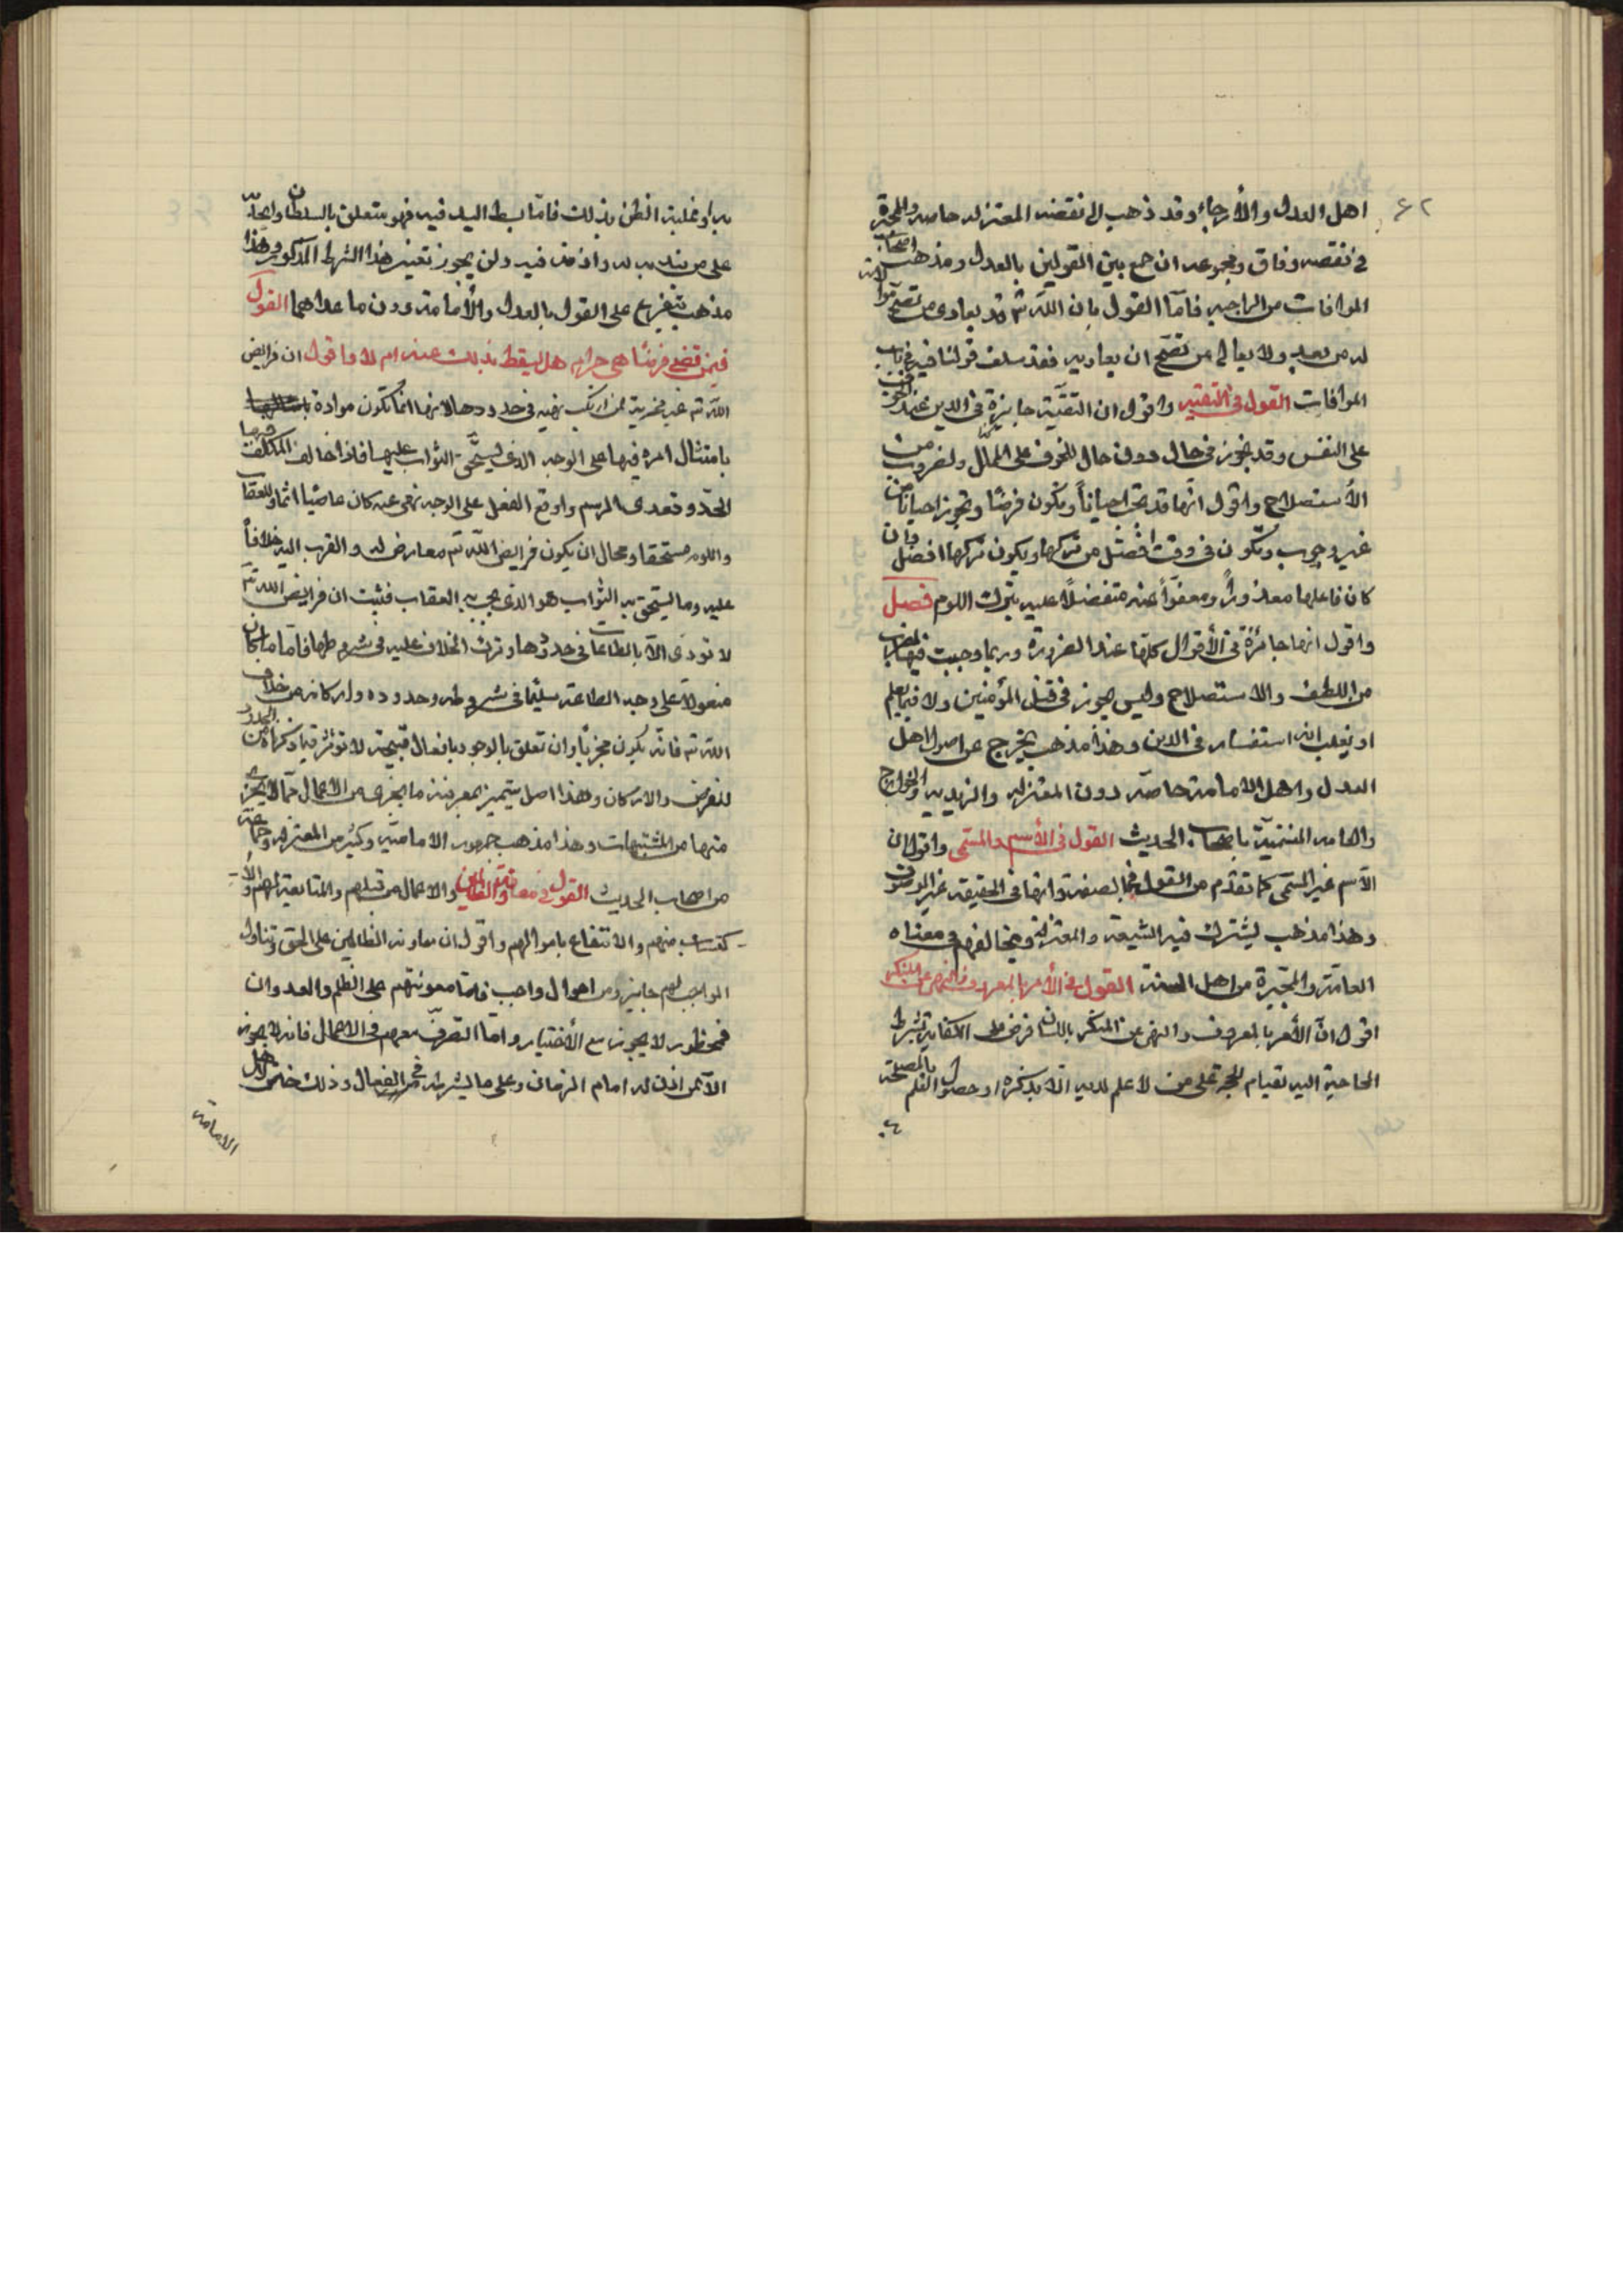 ٤٢
اهل العدل والأرجاء وقد ذهب الى نقضه المعتزله خاصه وللمجبرة
في نقضه وفاق ومجموعه ان جمع بين القولين بالعدل ومذهب اصحاب
الموافات من الراجيه فاما القول بان الله تم قد يعادى من تصح موالاته
له من بعد ولا يعالى من تصح ان يعاديه فقد سلف قولنا فيه في باب
الموافات القول في التقيه واقول ان التقيّة جايزة في الدين عند الخوف
على النفس وقد يجوز في حال دون حال للخوف على المال ولضروب من
الأستصلاح واقول انّها قد تجب احياناً وتكون فرضًا وتجوز احيانا من
غير وجوب وتكون في وقت افضل من تركها ويكون تركها افضل وان
كان فاعلها معذوراً ومعفوّاً عنه متفضلًا عليه بترك اللوم فصل
واقول انها جائزة في الأقوال كلها عند الضرورة وربما وجبت فيها لضرب
من اللطف والاستصلاح وليس يجوز في قتل المؤمنين ولا فيما يعلم
او يغلب انه استفساد في الدين وهذا مذهب يخرج عن اصول اهل
العدل واهل الامامة خاصّة دون المعتزله والزيديه والخوارج
والعامه المنتميّة باصحاب الحديث القول في الأسم والمسمى واقول ان
الأسم غير المسمّى كما تقدّم من القول في الصفة وانها في الحقيقه غير الموصوف
وهذا مذهب يشترك فيه الشيعة والمعتزلة ويخالفهم في معناه
العامّة والمجبّرة من اهل السنة القول في الأمر بالمعروف والنهى عن المنكر
اقول انّ الأمر بالمعروف والنهى عن المنكر باللسان فرض على الكفاية بشرط
الحاجة اليه لقيام الحجة على من لا علم لديه الّا بذكره او حصول العلم بالمصلحة
به او غلبة الظن بذلك فامّا بسط اليد فيه فهو متعلق بالسلطان وايجابه
على من يندبه له واذنه فيه ولن يجوز تغيير هذا الشرط المذكور وهذا
مذهب يتفرع على القول بالعدل والأمامة دون ما عداهما القول
فيمن قضى فرضًا هى حرام هل يسقط بذلك عنه ام لا واقول ان فرايض
الله تم غير مجزية لمن ارتكب نهيه في حدودها لانها انما تكون موادة
بامتثال امره فيها على الوجه الذى يستحق الثواب عليها فاذا خالف المكلف فيها
الحدّ وتعدى المرسم واوقع الفعل على الوجه نهى عنه كان عاصيا اثما وللعقاب
واللوم مستحقا ومحال ان يكون فرايض الله تم معاوض له والقرب اليه خلافاً
عليه وما يستحق به الثواب هو الذى يجب به العقاب فثبت ان فرايض الله تم
لا تودى الّا بالطاعات في حدودها وترك الخلاف عليه في شروطها فامّا ما كان
مفعولا على وجه الطاعة سليمًا في شروطه وحدوده واركانه من خلاف
الله تم فانّه يكون مجزيًا وان تعلق بالوجود بافعال قبيحة لا تؤثر فيما ذكرناه من الحدود
للفرض والاركان وهذا اصل يتميز بمعرفته ما يجزى من الاعمال مما لا يجزى
منها من المشتبهات وهذا مذهب جمهور الاماميّة وكثير من المعتزله وجماعة
من اصحاب الحديث القول في معاونة الظالمين والاعمال من قبلهم والمتابعة لهم والأ
كتساب منهم والانتفاع باموالهم واقول ان معاونه الظالمين على الحق وتناول
الواجب لهم جايز ومن احوال واجب فامّا معونتهم على الظلم والعدوان
فمحظور لا يجوز مع الأختيار وامّا التصرّف معهم في الاعمال فانه لا يجوز
الّا لمن اذن له امام الزمان وعلى ما يشرطه في من الفعال وذلك خاص لاهل
الامامة